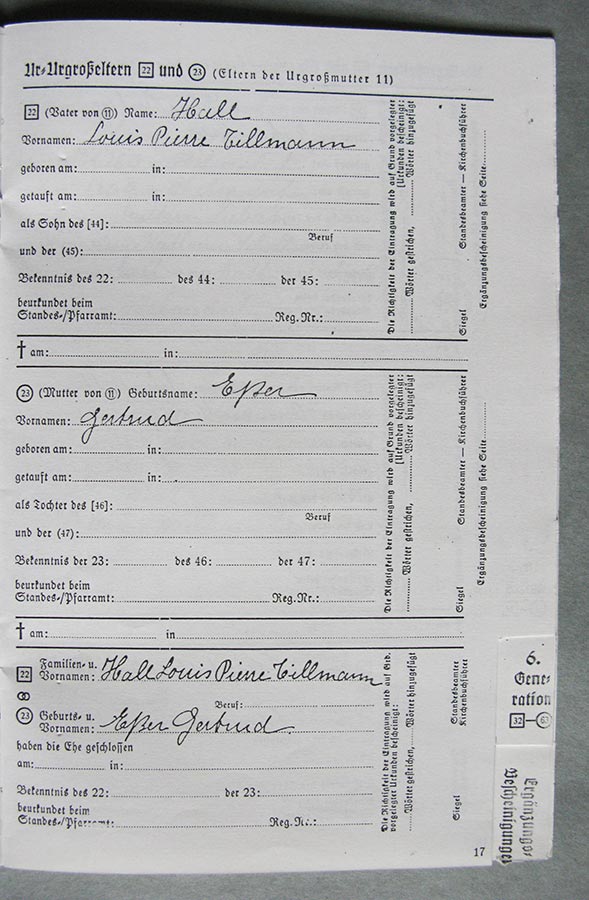 Ur-Urgroßeltern 22 und 23 (Eltern der Urgroßmutter 11)
22 (Vater von 11) Name: Hall
Vornamen: Louis Pierre Tillmann
geboren am: in:
getauft am: in:
als Sohn des [44]:
Beruf
und der (45):
Bekenntnis des 22: des 44: der 45:
beurkundet beim
Standes-/Pfarramt: Reg. Nr.:
Die Richtigkeit der Eintragung wird auf Grund vorgelegter
[Urkunden bescheinigt:
Wörter gestrichen, Wörter hinzugefügt
Siegel Standesbeamter — Kirchenbuchführer
Ergänzungsbescheinigung siehe Seite
† am: in:
23 (Mutter von 11) Geburtsname: Eßer
Vornamen: Gertrud
geboren am: in:
getauft am: in:
als Tochter des [46]:
Beruf
und der (47):
Bekenntnis der 23: des 46: der 47:
beurkundet beim
Standes-/Pfarramt: Reg. Nr.:
Die Richtigkeit der Eintragung wird auf Grund vorgelegter
[Urkunden bescheinigt:
Wörter gestrichen, Wörter hinzugefügt
Siegel Standesbeamter — Kirchenbuchführer
Ergänzungsbescheinigung siehe Seite
† am: in
22 Familien- u.
Vornamen: Hall Louis Pierre Tillmann
Beruf:
23 Geburts- u.
Vornamen: Eßer Gertrud
haben die Ehe geschlossen
am: in:
Bekenntnis des 22: der 23:
beurkundet beim
Standes-/Pfarramt: Reg. Nr.:
Die Richtigkeit der Eintragung wird auf Grd.
vorgelegter Urkunden bescheinigt:
Wörter gestrichen, Wörter hinzugefügt
Siegel Standesbeamter
Kirchenbuchführer
6.
Gene-
ration
32—63
Ergänzungs-
Bescheinigungen
17